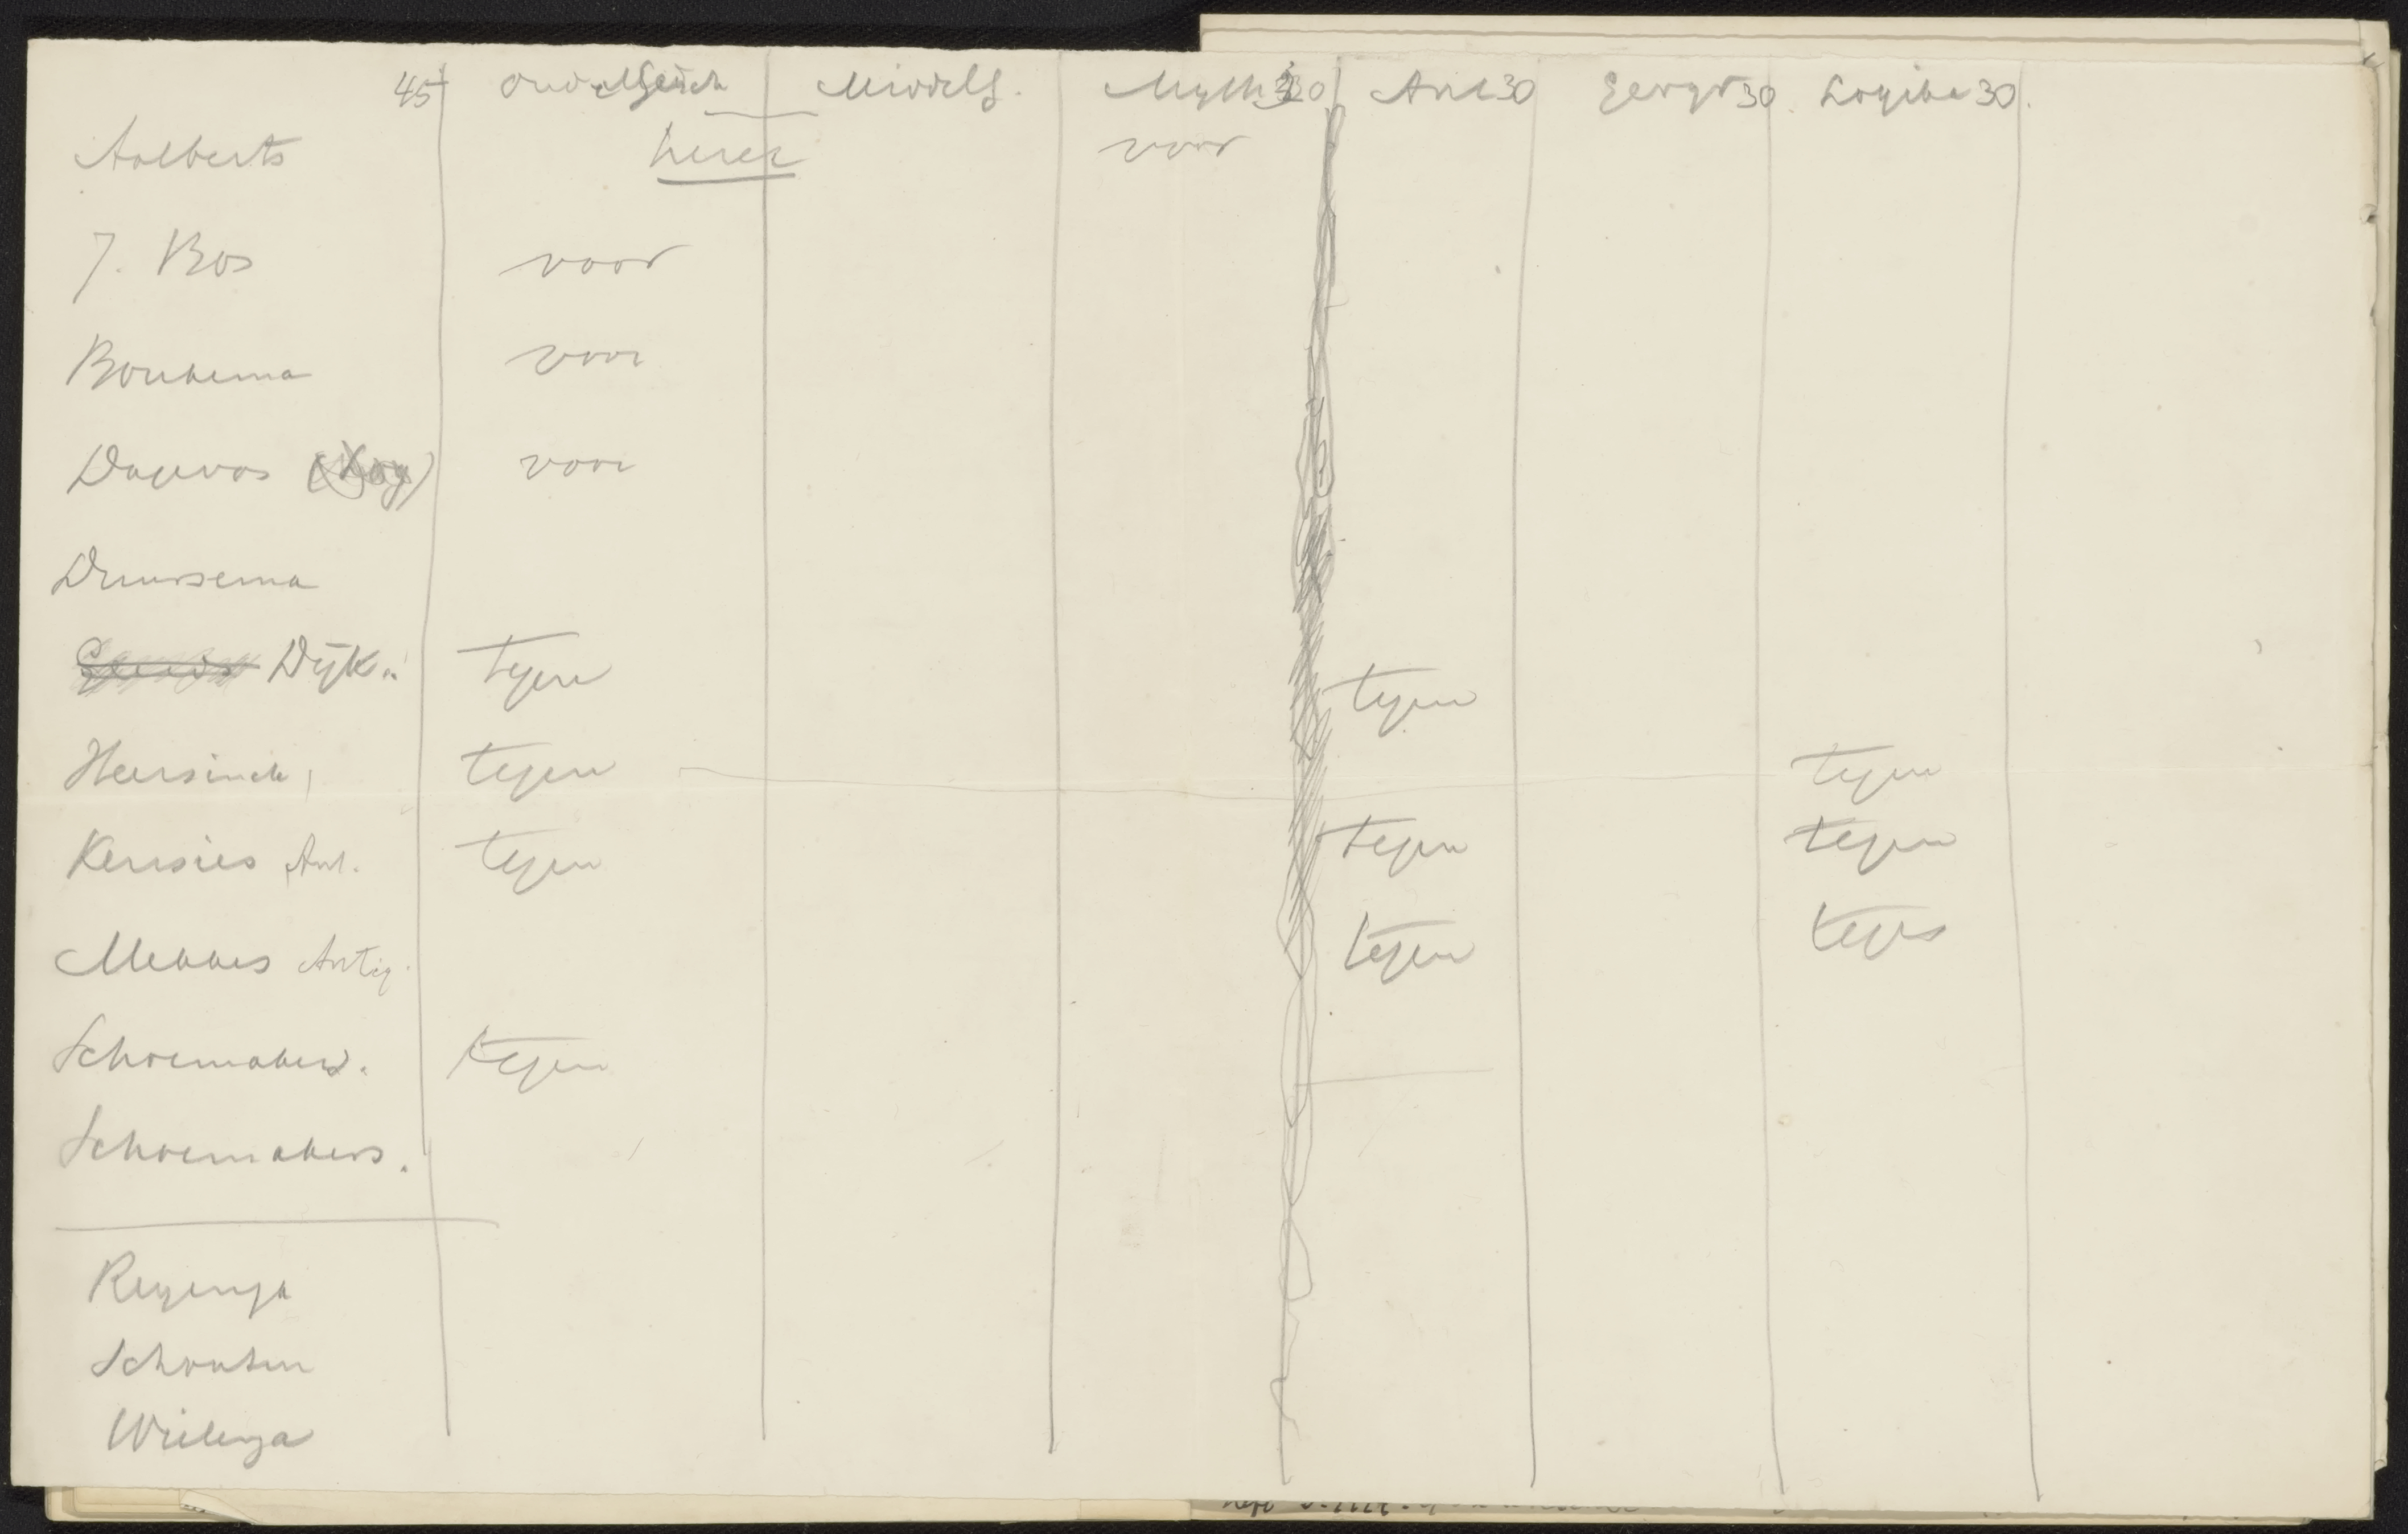 45 Middelg. Myth 30 Ant 30 Geogr 30 Logika 30.
Aalberts voor
J. Bos voor
Boukema voor
Dagevos voor
Duursema
Dijk. tegen tegen
Heersink tegen tegen
Kersies Ant. tegen tegen tegen
Mekkes Antiq. tegen tegen
Schoemakers. tegen
Schoemakers.
Reyenga
Schouten
Wielenga